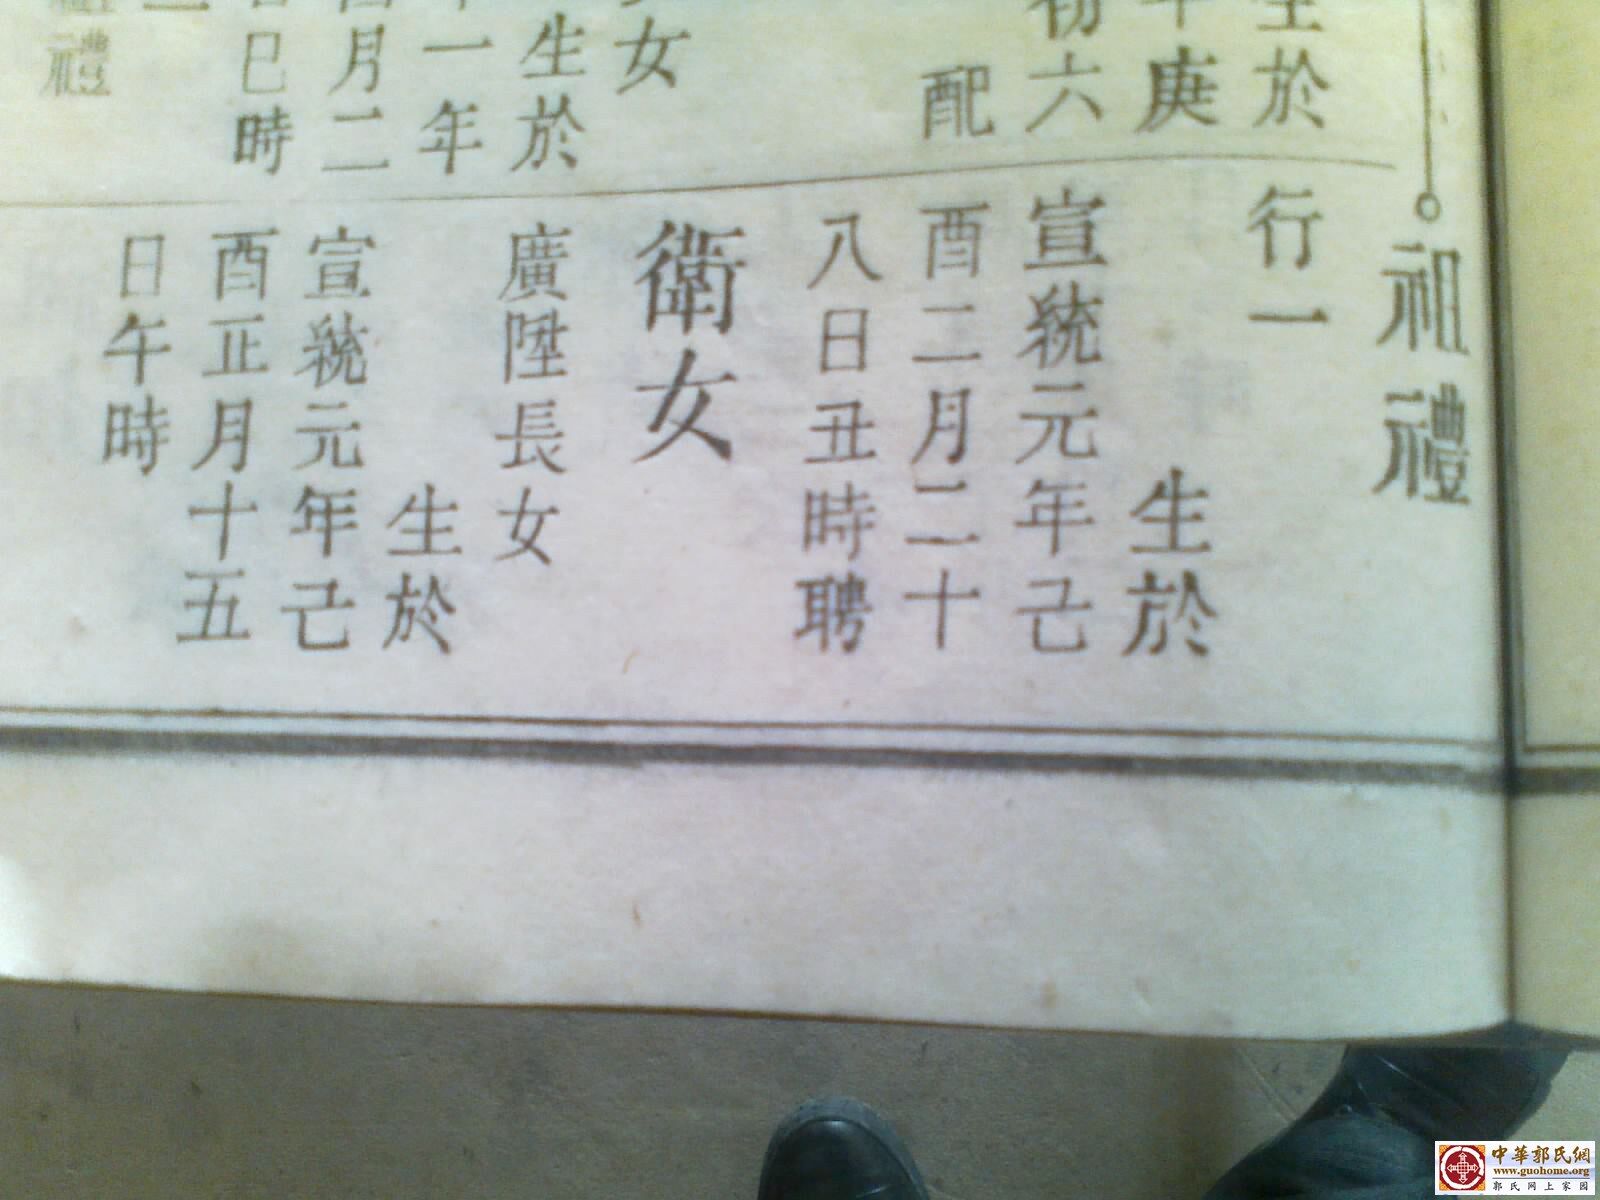 生於
年庚
初六
配
女
生於
一年
月二
巳時
禮
祖禮
行一
生於
宣統元年己
酉二月二十
八日丑時聘
衛女
廣陞長女
生於
宣統元年己
酉正月十五
日午時
中華郭氏網
www.guohome.org
郭氏网上家园